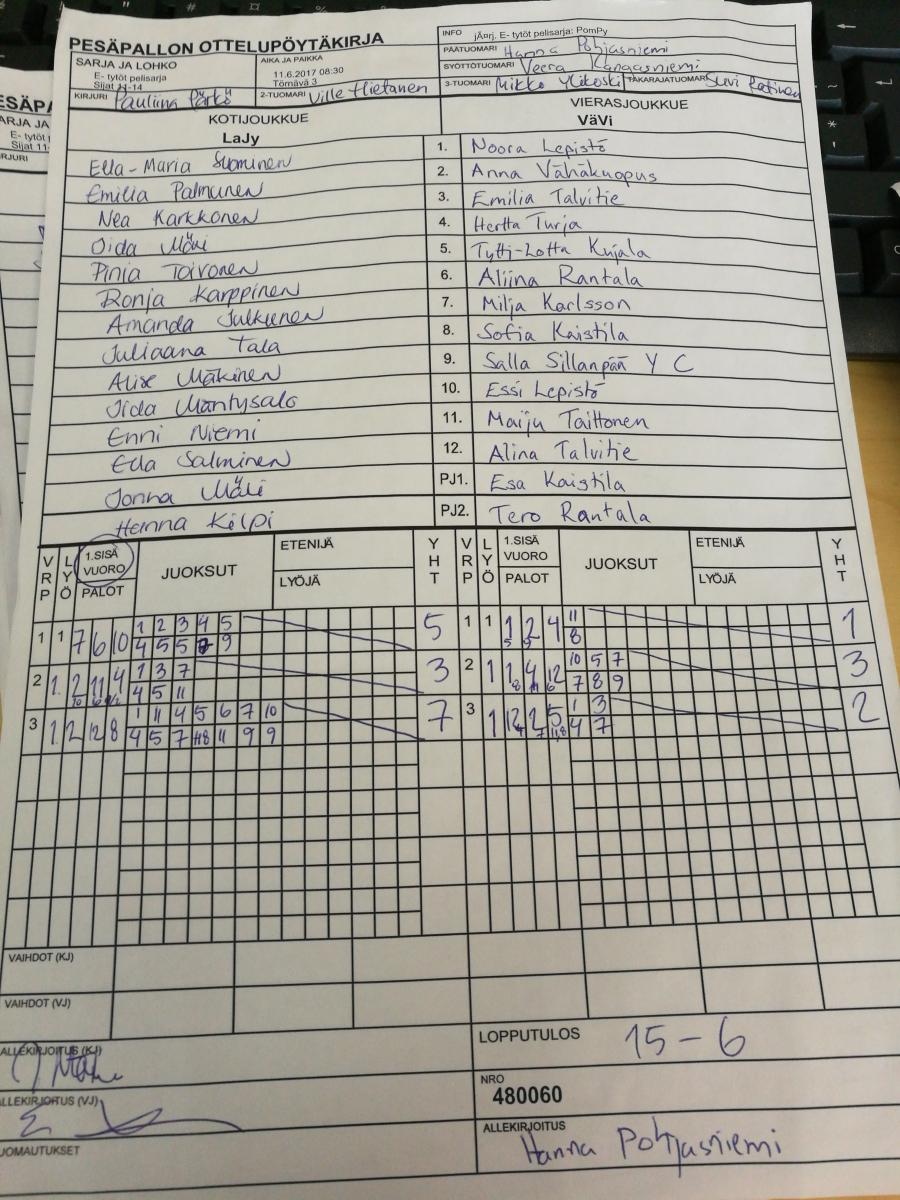 PESÄPALLON OTTELUPÖYTÄKIRJA
INFO jÄ¤rj. E- tytöt pelisarja: PomPy
PÄÄTUOMARI Hanna Pohjasniemi
SYÖTTÖTUOMARI Veera Kangasniemi
3-TUOMARI Mikko Ylikoski TAKARAJATUOMARI Suvi
SARJA JA LOHKO
E- tytöt pelisarja
Sijat 11-14
AIKA JA PAIKKA
11.6.2017 08:30
Törnävä 3
KIRJURI Pauliina Pärkö 2-TUOMARI Ville Hietanen
KOTIJOUKKUE VIERASJOUKKUE
LaJy VäVi
Ella-Maria Suominen 1. Noora Lepistö
Emilia Palmunen 2. Anna Vähäkuopus
Nea Karkkonen 3. Emilia Talvitie
Oida Mäki 4. Hertta Turja
Pinja Toivonen 5. Tytti-Lotta Kujala
Ronja Karppinen 6. Aliina Rantala
Amanda Julkunen 7. Milja Karlsson
Juliaana Tala 8. Sofia Kaistila
Alise Mäkinen 9. Salla Sillanpää Y C
Iida Mäntysalo 10. Essi Lepistö
Enni Niemi 11. Maiju Taittonen
Ella Salminen 12. Alina Talvitie
Jonna Mäki PJ1. Esa Kaistila
Henna Kilpi PJ2. Tero Rantala
VRP LYÖ 1.SISÄ VUORO PALOT JUOKSUT ETENIJÄ LYÖJÄ YHT VRP LYÖ 1.SISÄ VUORO PALOT JUOKSUT ETENIJÄ LYÖJÄ YHT
1 1 7 6 10 1 2 3 4 5 5 1 1 1 2 4 11 1
4 5 5 7 9 5 9 8
2 1. 2 11 4 1 3 7 3 2 1 1 4 12 10 5 7 3
10 6 4 5 11 8 11 6 7 8 9
3 1. 2 12 8 1 11 4 5 6 7 10 7 3 1 12 2 5 1 3 2
4 5 7 8 11 9 9 4 7 4 7
VAIHDOT (KJ)
VAIHDOT (VJ)
ALLEKIRJOITUS (KJ)
LOPPUTULOS 15 - 6
ALLEKIRJOITUS (VJ)
NRO
480060
HUOMAUTUKSET
ALLEKIRJOITUS
Hanna Pohjasniemi